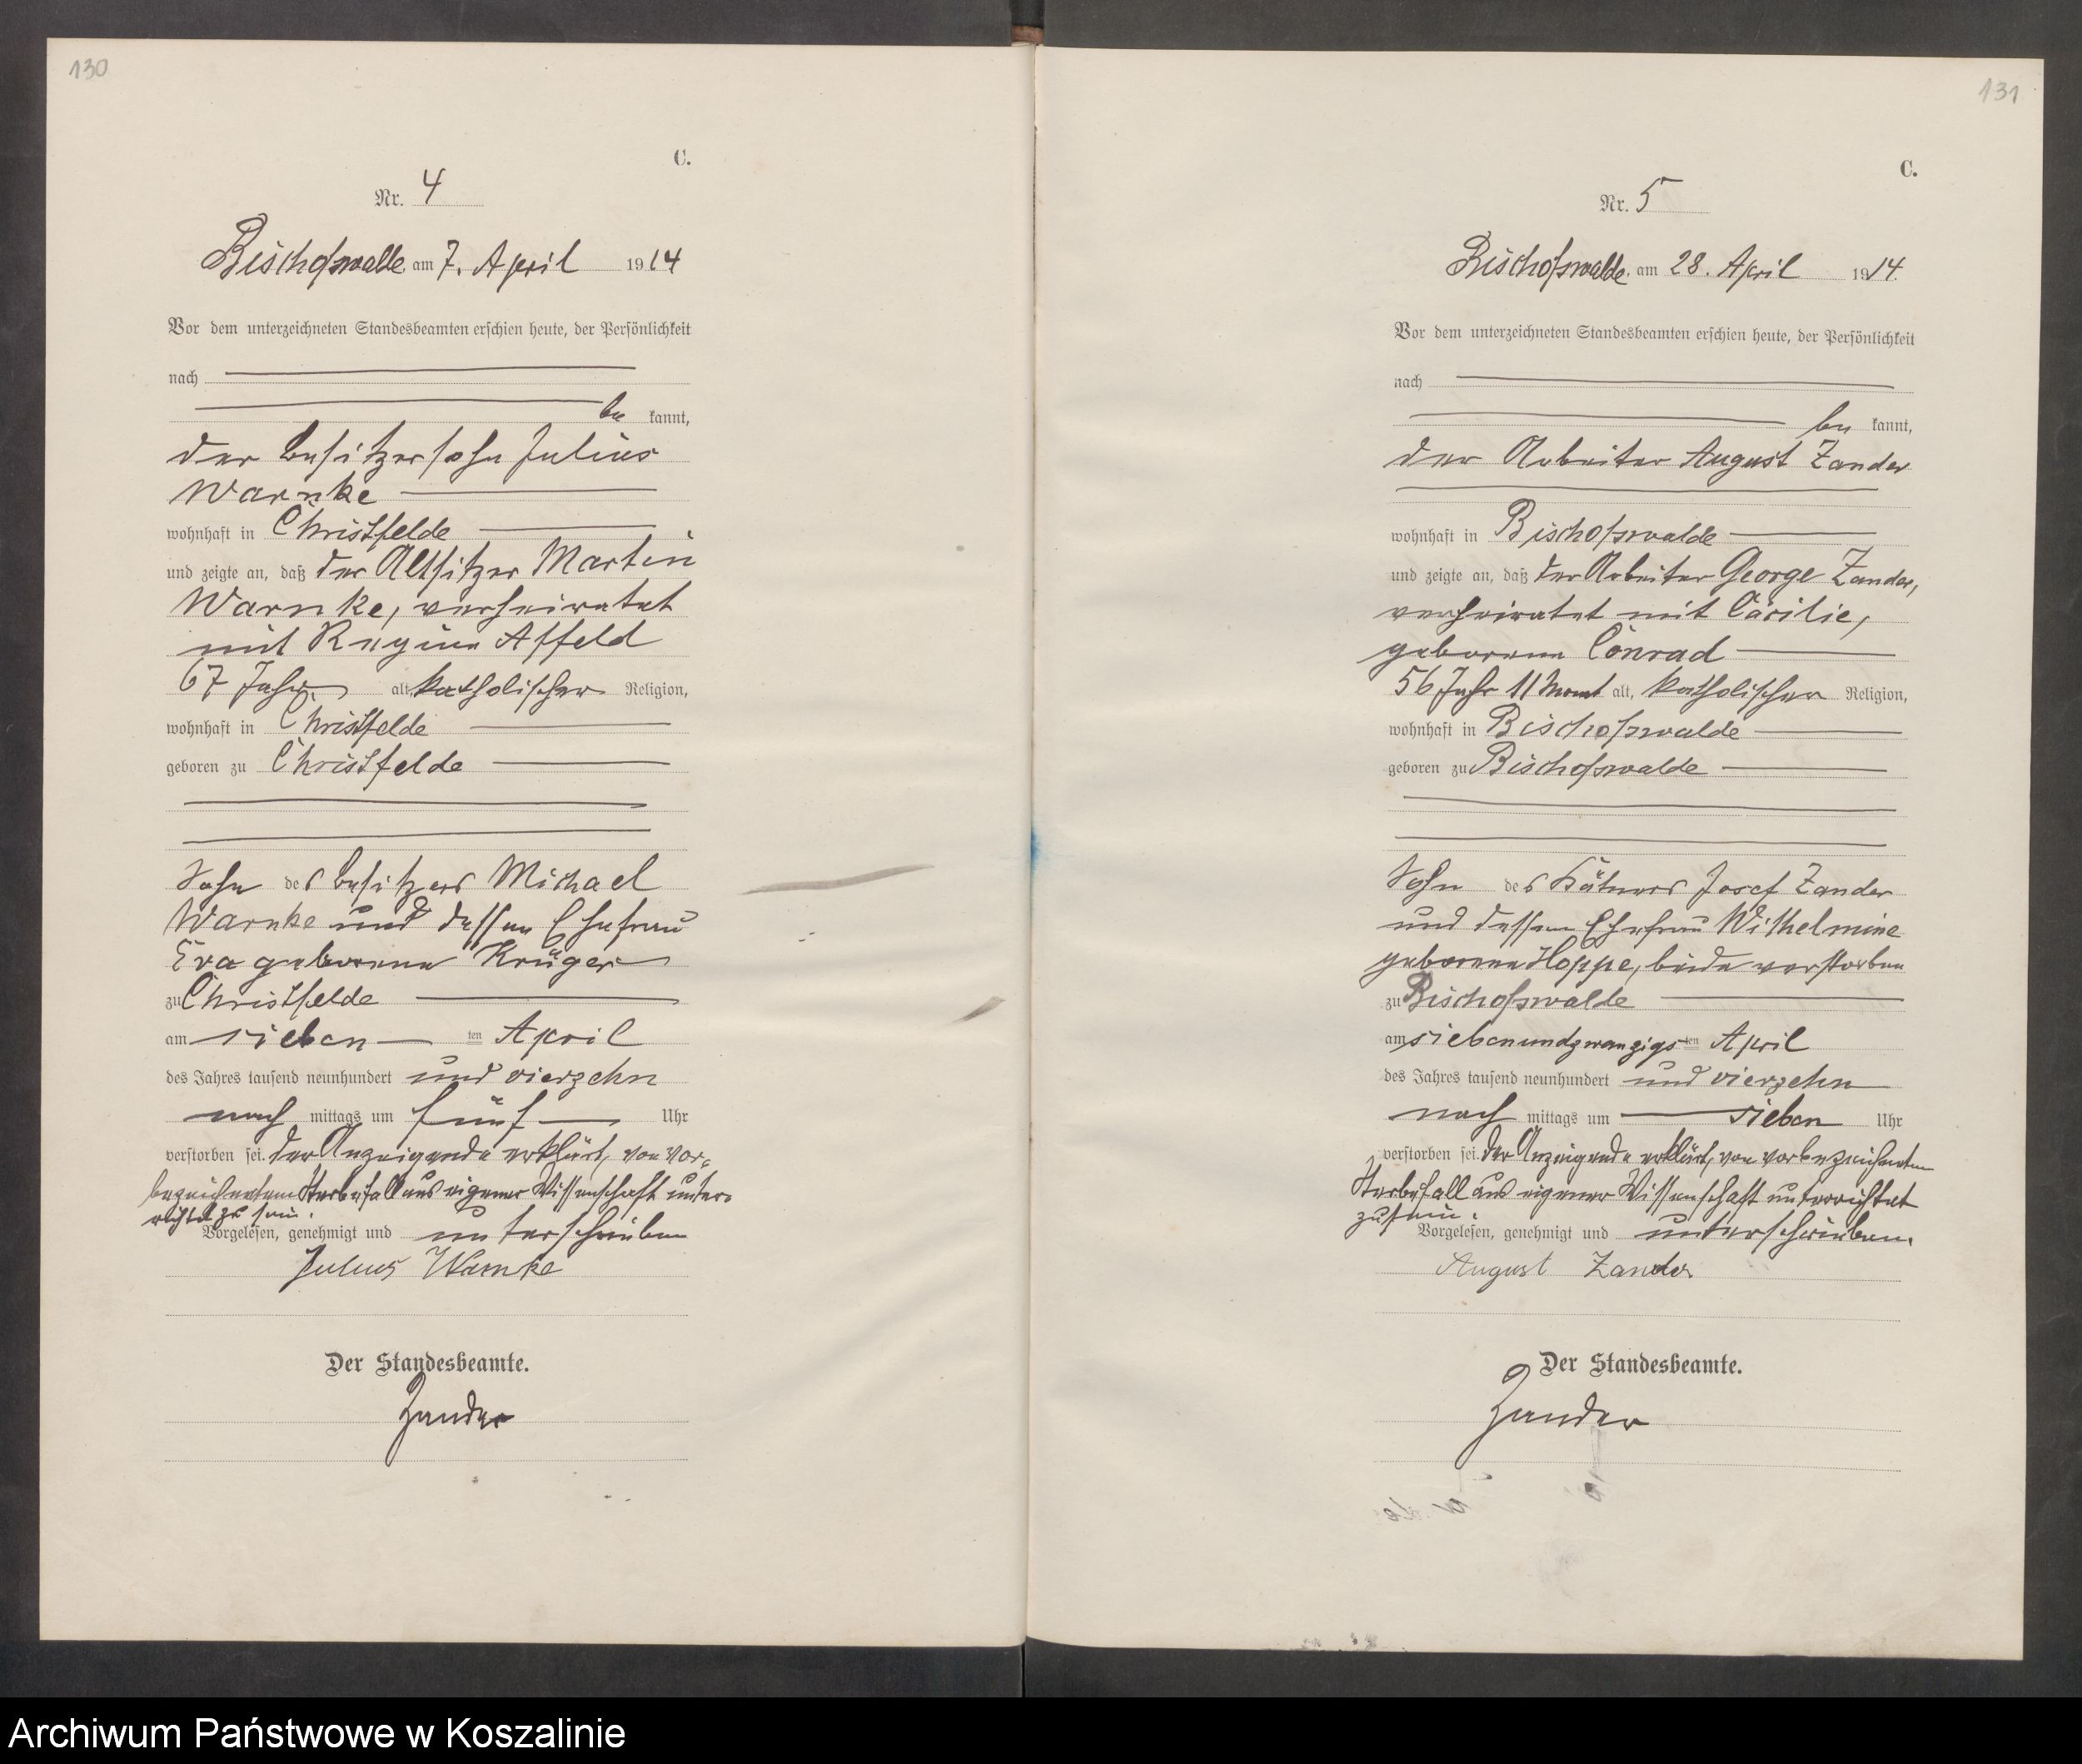 130
C.
Nr. 4
Bischofswalde am 7. April 1914
Vor dem unterzeichneten Standesbeamten erschien heute, der Persönlichkeit
nach
be kannt,
der Besitzersohn Julius
Warnke
wohnhaft in Christfelde
und zeigte an, daß der Altsitzer Martin
Warnke, verheiratet
mit Regine Affeld
67 Jahre alt, katholischer Religion,
wohnhaft in Christfelde
geboren zu Christfelde
Sohn des Besitzers Michael
Warnke und dessen Ehefrau
Eva geborene Krüger
zu Christfelde
am sieben ten April
des Jahres tausend neunhundert und vierzehn
nach mittags um fünf Uhr
verstorben sei. Der Anzeigende erklärt, von vor-
bezeichnetem Sterbefall aus eigener Wissenschaft unter-
richtet zu sein.
Vorgelesen, genehmigt und unterschrieben
Julius Warnke
Der Standesbeamte.
Zander
131
C.
Nr. 5
Bischofswalde am 28. April 1914
Vor dem unterzeichneten Standesbeamten erschien heute, der Persönlichkeit
nach
be kannt,
der Arbeiter August Zander
wohnhaft in Bischofswalde
und zeigte an, daß der Arbeiter George Zander,
verheiratet mit Cäcilie,
geborene Conrad
56 Jahr 11 Monat alt, katholischer Religion,
wohnhaft in Bischofswalde
geboren zu Bischofswalde
Sohn des Kätners Josef Zander
und dessen Ehefrau Wilhelmine
geborene Hoppe, beide verstorben
zu Bischofswalde
am siebenundzwanzigs ten April
des Jahres tausend neunhundert und vierzehn
nach mittags um sieben Uhr
verstorben sei. Der Anzeigende erklärt, von vorbezeichnetem
Sterbefall aus eigener Wissenschaft unterrichtet
zu sein.
Vorgelesen, genehmigt und unterschrieben.
August Zander
Der Standesbeamte.
Zander
Archiwum Państwowe w Koszalinie